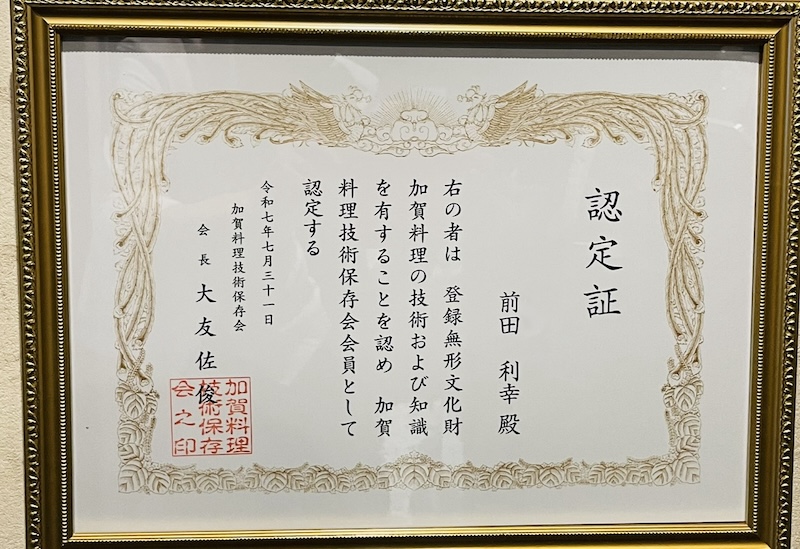 認定証
前田 利幸 殿
右の者は 登録無形文化財
加賀料理の技術および知識
を有することを認め 加賀
料理技術保存会会員として
認定する
令和七年七月三十一日
加賀料理技術保存会
会長 大友佐俊
加賀料理
技術保存
会之印